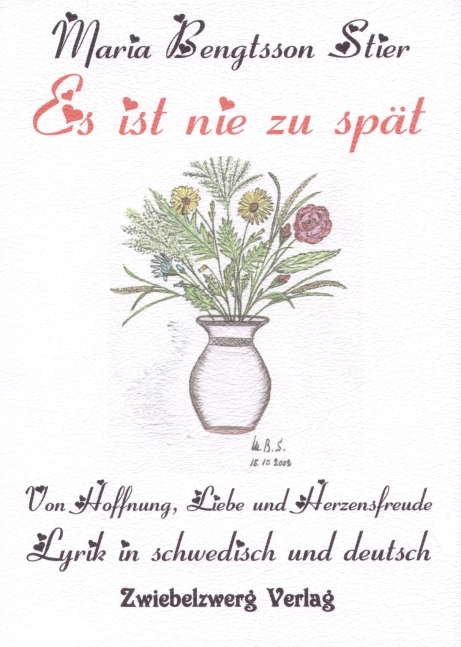 Maria Bengtsson Stier
Es ist nie zu spät
M.B.S.
18.10.2002
Von Hoffnung, Liebe und Herzensfreude
Lyrik in schwedisch und deutsch
Zwiebelzwerg Verlag